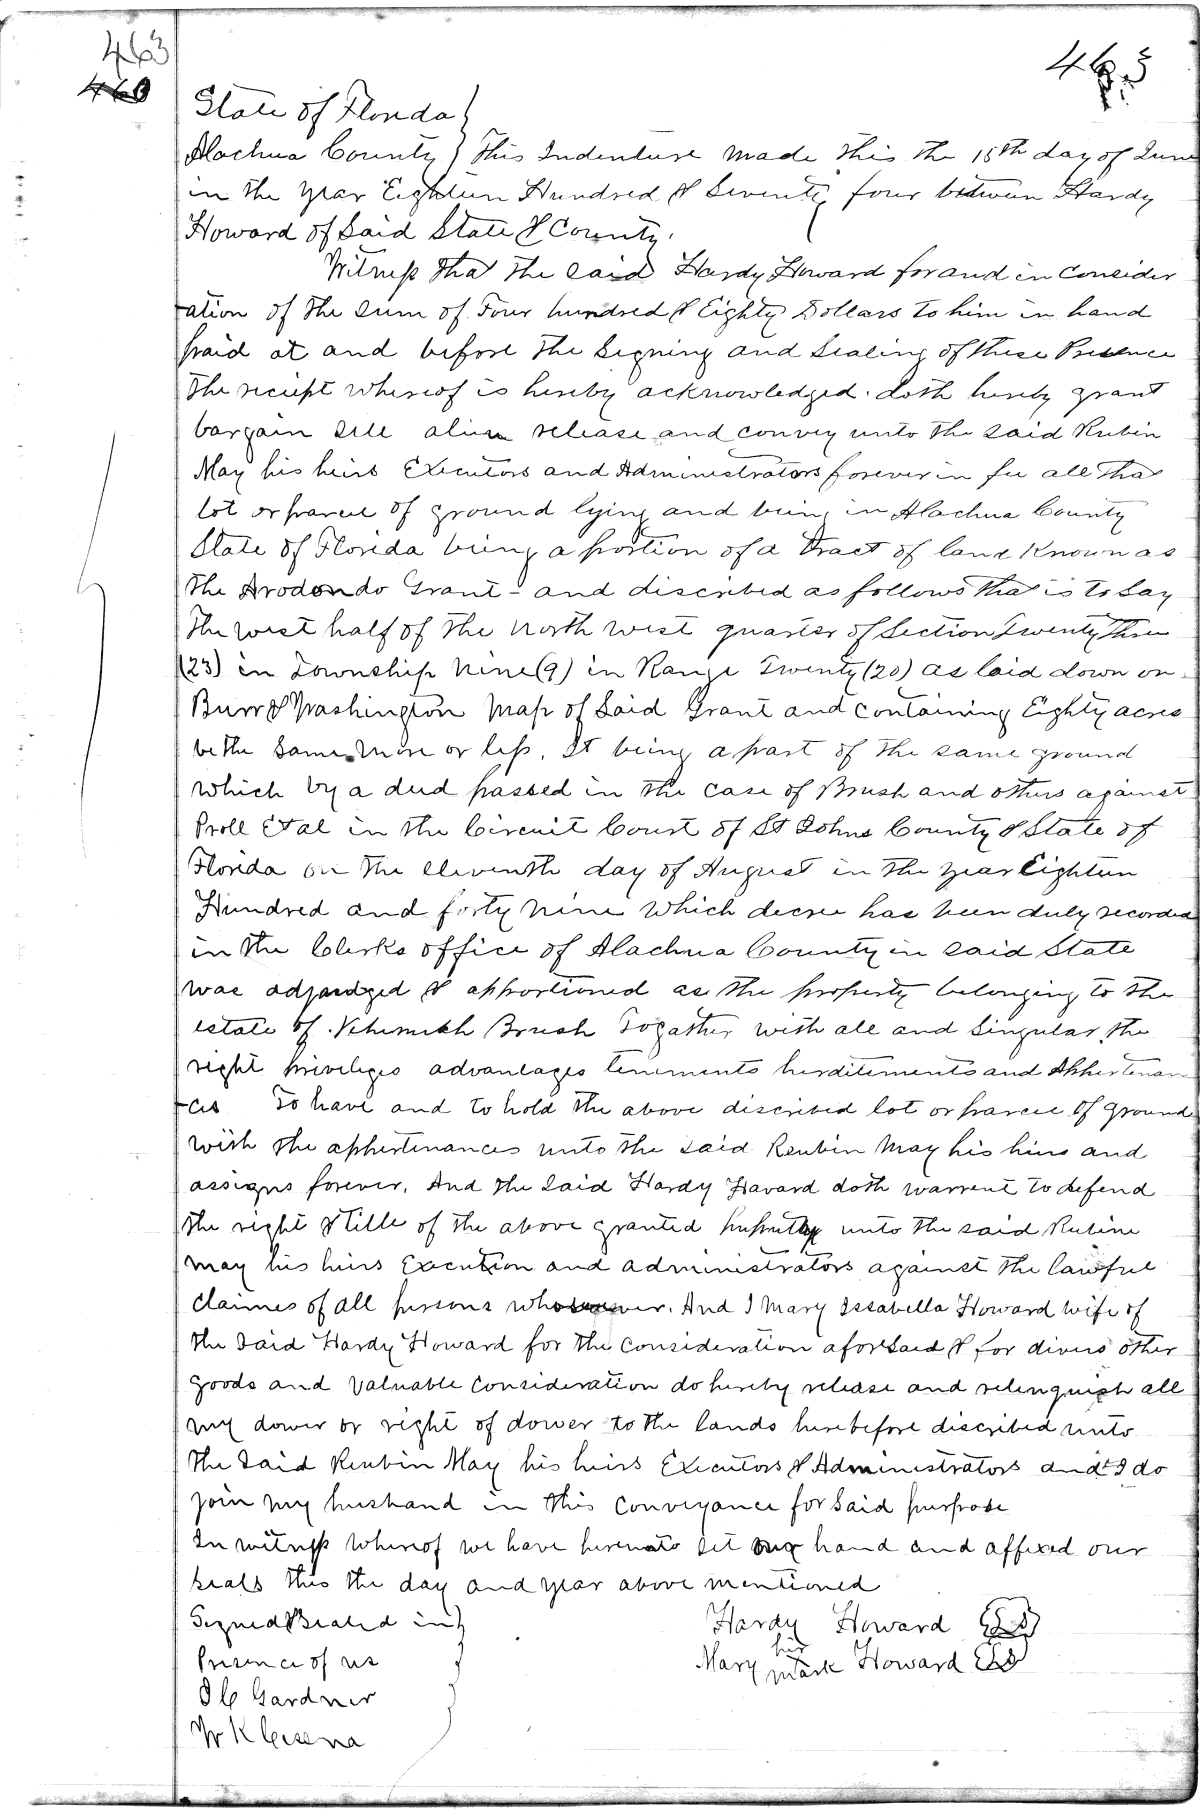 463
460
463
State of Florida }
Alachua County } This Indenture made this the 15th day of June
in the year Eighteen Hundred & Seventy four between Hardy
Howard of Said State & County.
Witness that the said Hardy Howard for and in consider
-ation of the sum of Four hundred & Eighty Dollars to him in hand
paid at and before the Signing and Sealing of these Presence
the reciept whereof is hereby acknowledged. doth hereby grant
bargain sell alien release and convey unto the said Rubin
May his heirs Executors and Administrators forever in fee all that
lot or parcel of ground lying and being in Alachua County
State of Florida being a portion of a tract of land Known as
the Arodondo Grant - and discribed as follows that is to Say
the west half of the North west quarter of Section Twenty Three
(23) in Township Nine (9) in Range Twenty (20) as laid down on
Burr & Washington Map of Said Grant and containing Eighty acres
be the same more or less. It being a part of the same ground
which by a deed passed in the case of Brush and others against
Proll Et al in the Circuit Court of St Johns County & State of
Florida on the eleventh day of August in the year Eighteen
Hundred and forty nine which decree has been duly recorded
in the Clerks office of Alachua County in said State
was adjudged & apportioned as the property belonging to the
estate of Nehemiah Brush Togather with all and Singular the
right priveliges advantages tenements herditements and Appertenan
-ces To have and to hold the above discribed lot or parcel of ground
with the appertenances unto the said Reubin May his heirs and
assigns forever. And the Said Hardy Havard doth warrent to defend
the right & title of the above granted unto the said Rubine
may his heirs Execution and administrators against the lawful
claimes of all persons whosoever. And I Mary Issabella Howard wife of
the Said Hardy Howard for the consideration aforsaid & for divers other
goods and valuable consideration do hereby release and relenquish all
my dower or right of dower to the lands herebefore discribed unto
the Said Reubin May his heirs Executors & Administrators and I do
join my husband in this conveyance for Said purpose
In witness whereof we have hereunto set our hand and affixed our
seals this the day and year above mentioned
Signed & Sealed in } Hardy Howard LS
Presence of us Mary her mark Howard LS
J C Gardner
W K Cessna